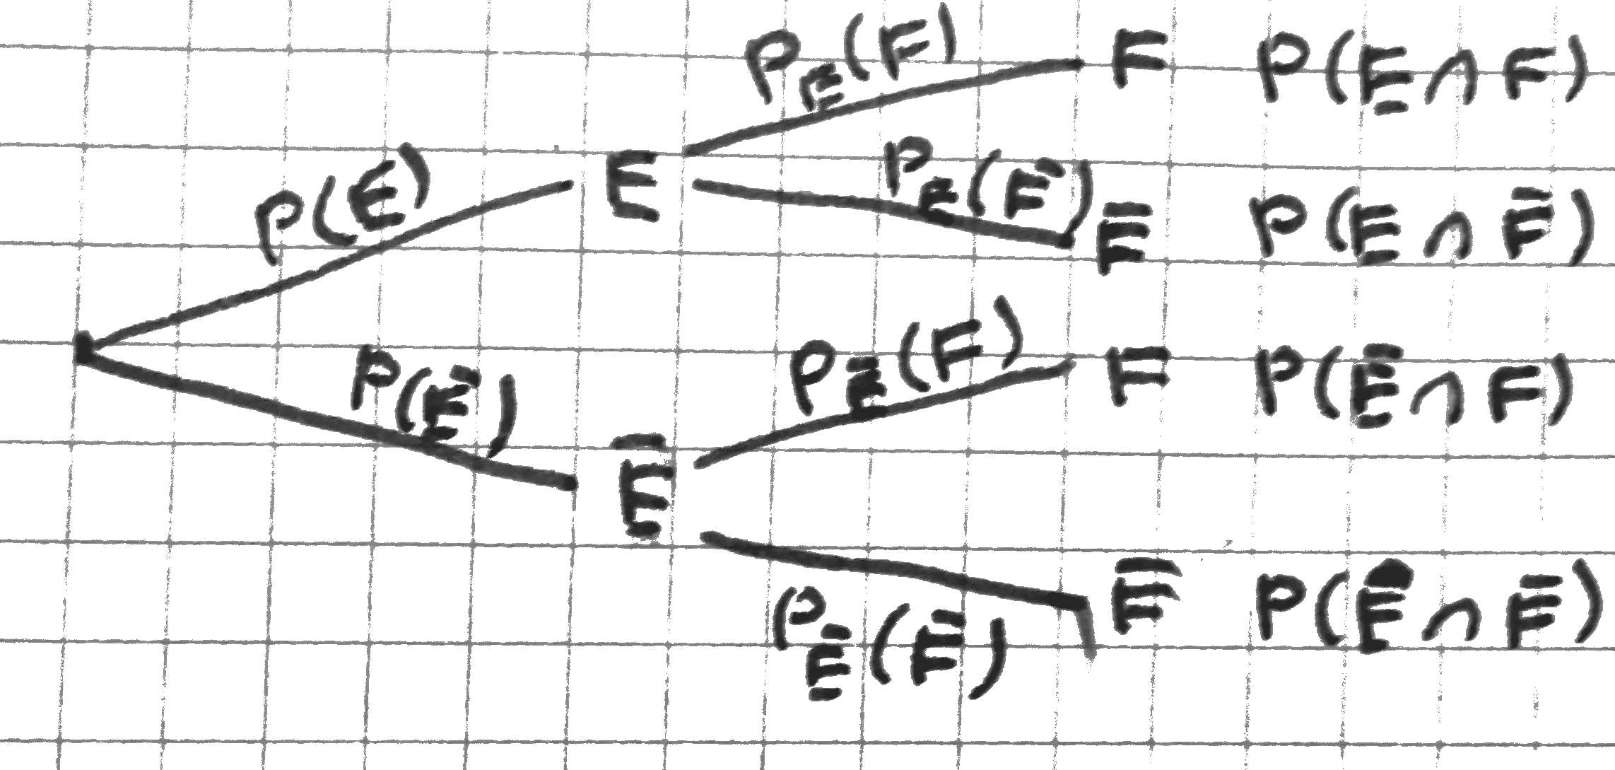 P_E(F) F P(E∩F)
P(E) E P_E(F̄) F̄ P(E∩F̄)
P(Ē) P_Ē(F) F P(Ē∩F)
Ē
P_Ē(F̄) F̄ P(Ē∩F̄)